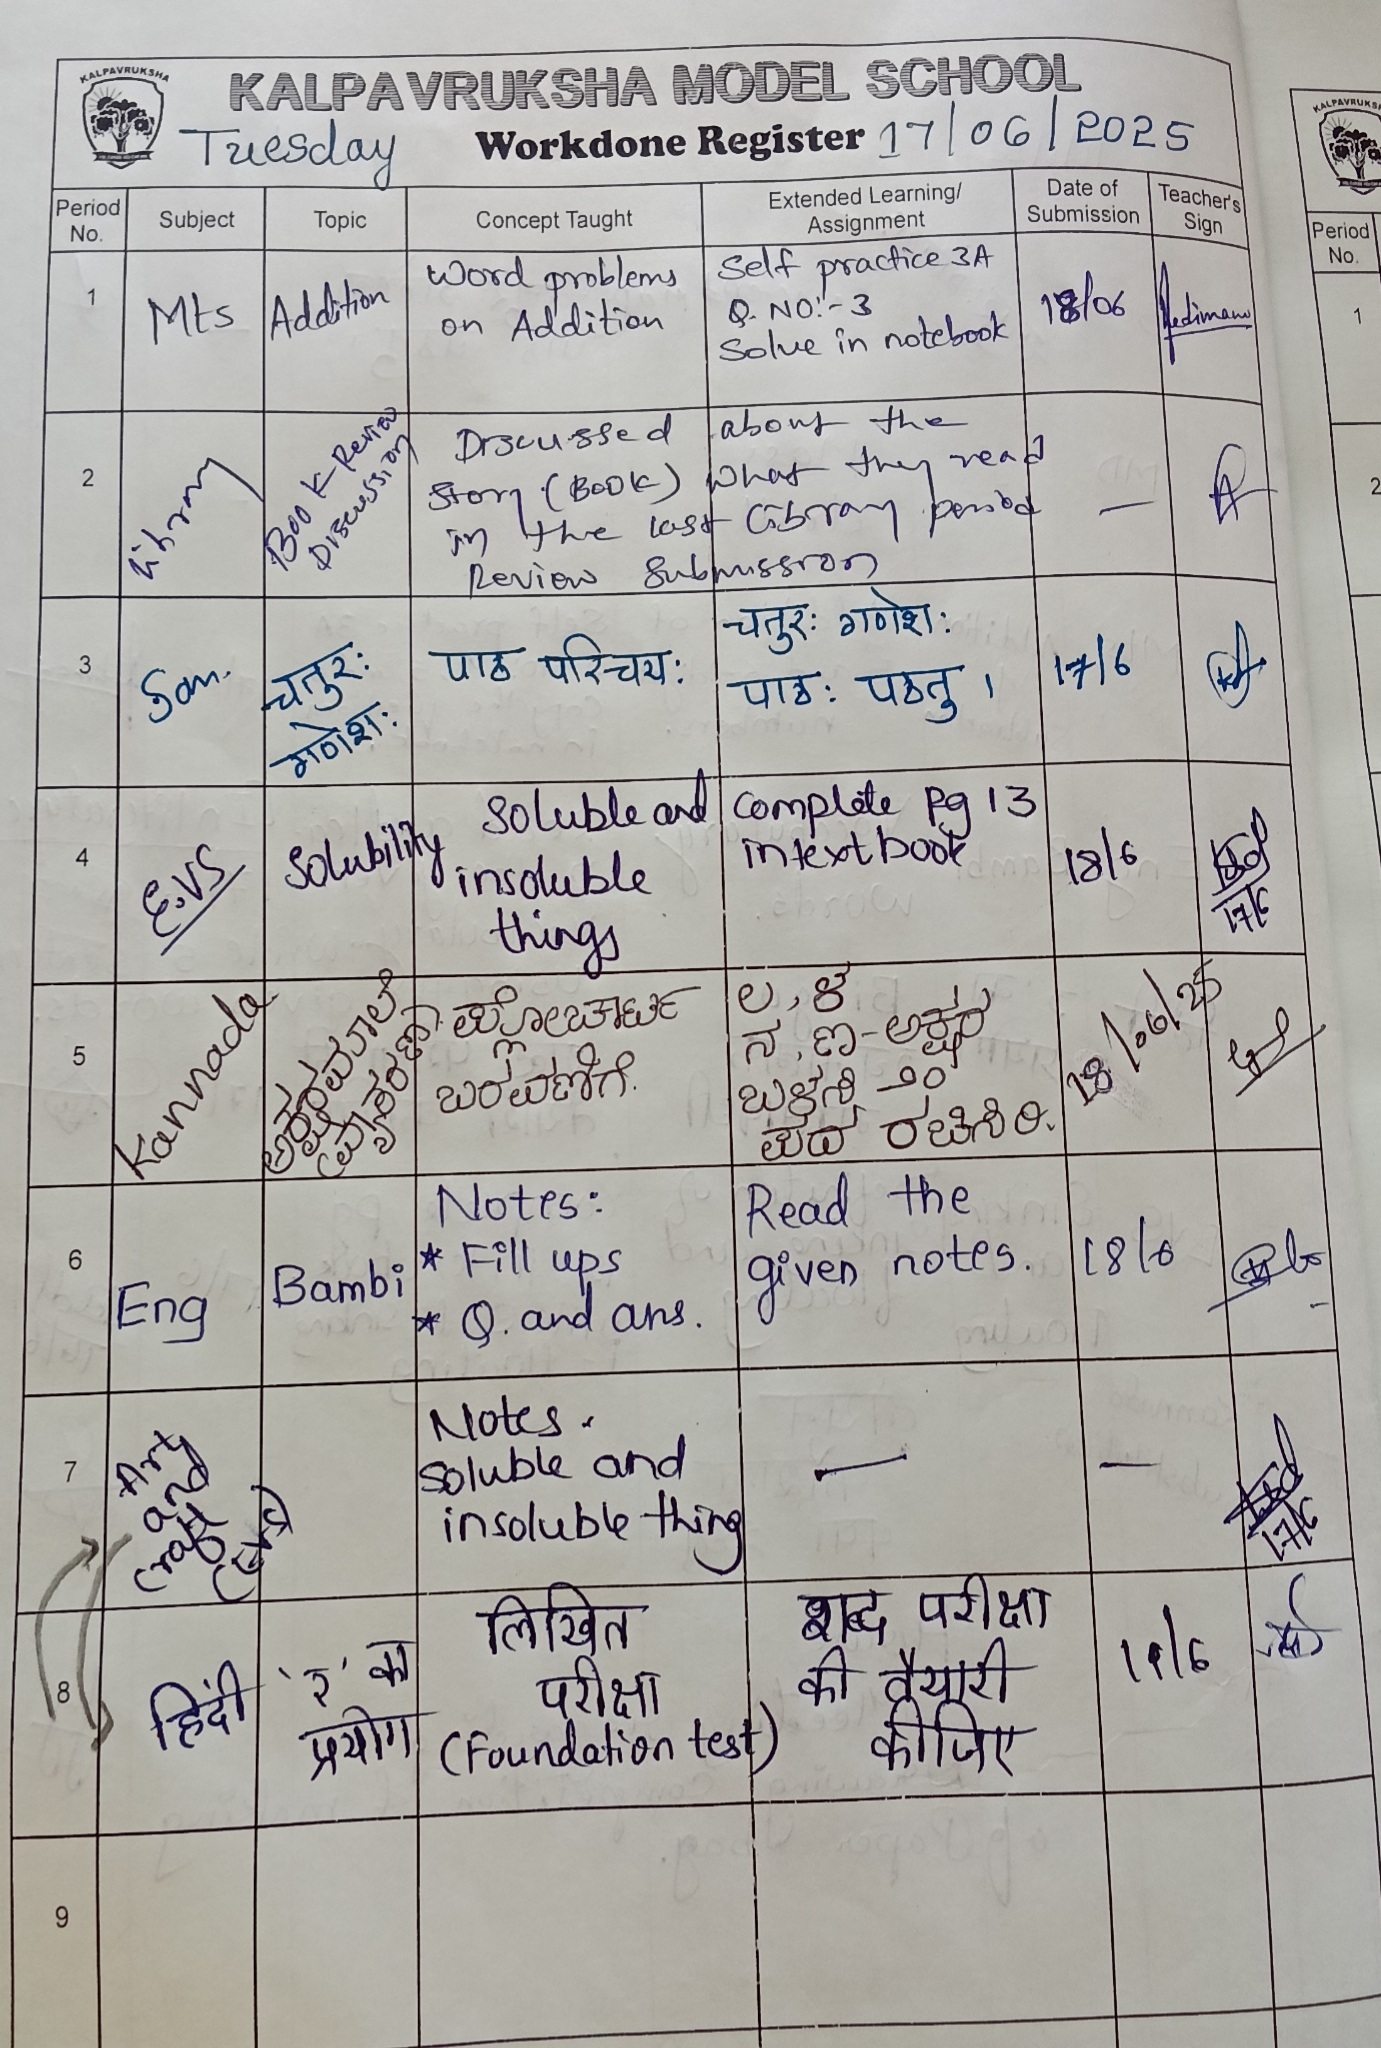 KALPAVRUKSHA
KALPAVRUKSHA MODEL SCHOOL
Tuesday Workdone Register 17/06/2025
Period No. Subject Topic Concept Taught Extended Learning/ Assignment Date of Submission Teacher's Sign
1 Mts Addition
Word problems
on Addition
Self practice 3A
Q. NO:-3
Solve in notebook
18/06
2 Library
Book Review
Discussion
Discussed about the
story (BOOK) what they read
in the last Library period
Review submission
—
3 San.
चतुरः
गणेशः
पाठ परिचयः
चतुरः गणेशः
पाठः पठतु ।
17/6
4 E.VS Solubility
Soluble and
insoluble
things
Complete Pg 13
in textbook
18/6
17/6
5 Kannada
ಅಕ್ಷರಮಾಲೆ
ಬರವಣಿಗೆ.
ಲ, ಳ
ನ, ಣ-ಅಕ್ಷರ
ಬಳಸಿ ೨೦
ಪದ ರಚಿಸಿರಿ.
18/06/25
6 Eng Bambi
Notes:
* Fill ups
* Q. and ans.
Read the
given notes.
18/6
7 Art
and
craft
(EVS)
Notes.
Soluble and
insoluble thing
—
—
17/6
8 हिंदी
'र' का
प्रयोग
लिखित
परीक्षा
(Foundation test)
शब्द परीक्षा
की तैयारी
कीजिए
19/6
9
KALPAVRUKS
Period
No.
1
2